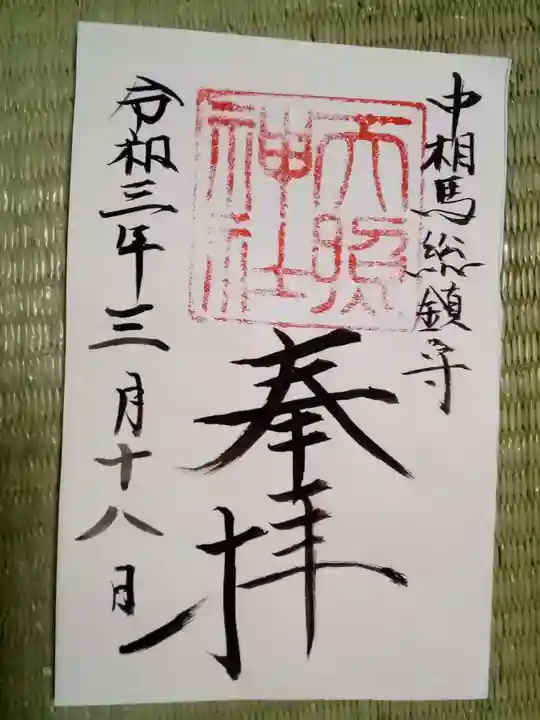 中相馬総鎮守
天照神社
奉拝
令和三年三月十八日